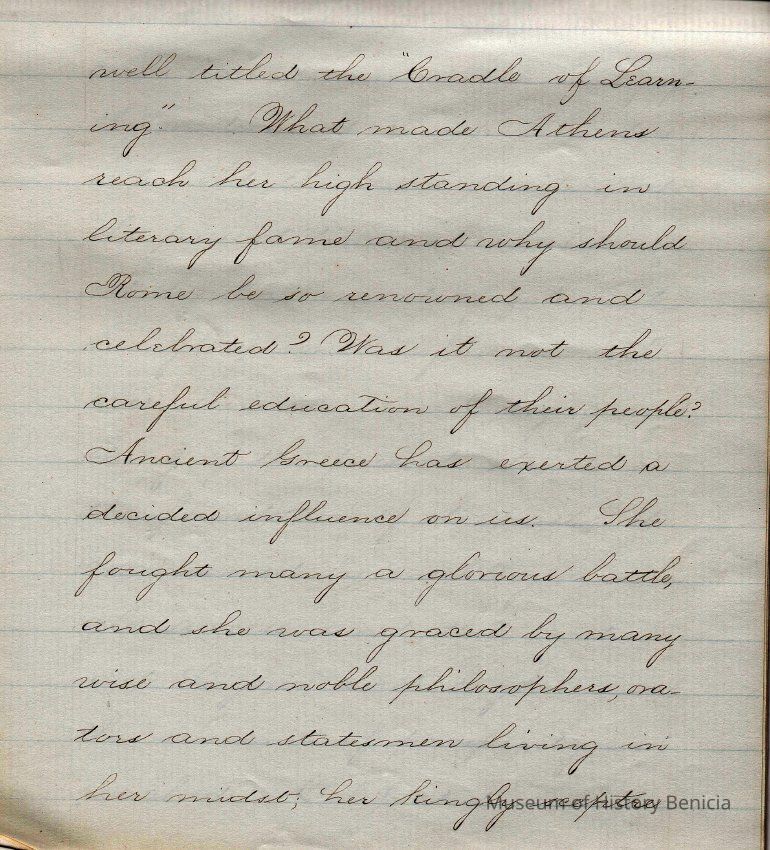 well titled the "Cradle of Learn-
ing". What made Athens
reach her high standing in
literary fame and why should
Rome be so renowned and
celebrated? Was it not the
careful education of their people?
Ancient Greece has exerted a
decided influence on us. She
fought many a glorious battle,
and she was graced by many
wise and noble philosophers, ora-
tors and statesmen living in
her midst; her kingly
Museum of History Benicia